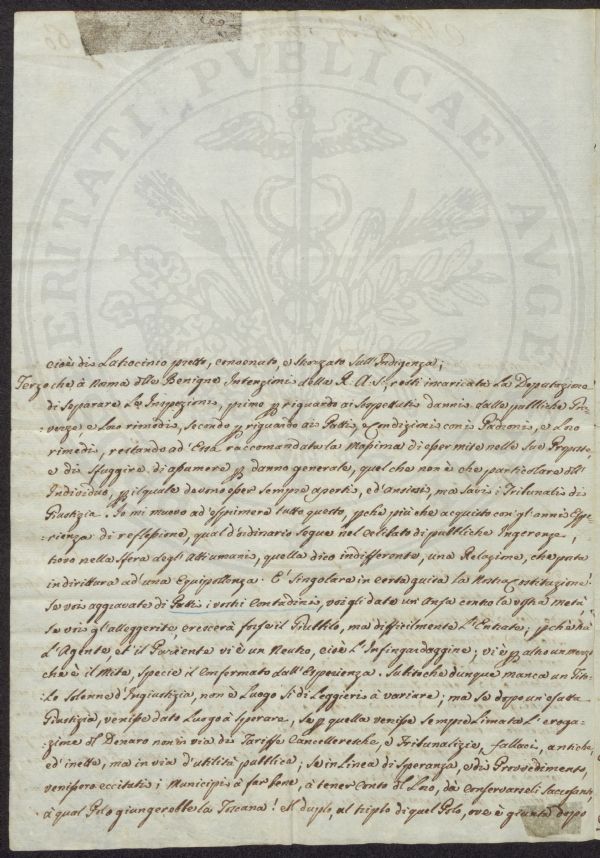 PROSPERITATI PUBLICAE AUGENDAE
cioè di Latrocinio pretto, convenuto, e sforzato sull'Indigenza;
Terzo che à norma delle Benigne Intenzioni della R. A. S. resti incaricata La Deputazione
di separare Le Inspezioni, primo per riguardo ai sospettati danni dalle pubbliche
e Loro rimedi, Secondo per riguardo ai Patti, e Condizioni con i Padroni, e Loro
rimedi, restando ad Essa raccomandata la Massima di esser mite nelle Sue Proposte,
e di sfuggire di assumere per danno generale, quel che non è che particolare dell'
Individuo, per il quale devono esser sempre aperti, ed ansiosi, ma Savi i Tribunali di
Giustizia. Io mi muovo ad esprimere tutto questo, perchè più che acquisto con gl'anni Espe-
rienza di reflessione, qual d'ordinario segue nel Celibato di pubbliche Ingerenze,
trovo nella Sfera degli Atti umani, quella dico indifferente, una Relazione, che porta
indirittura ad una Equipollenza. E' Singolare in certa guisa la Nostra Costituzione:
Se voi aggravate di Patti i vostri Contadini, voi gli date un'Ansa contro la vostra metà;
Se voi gl'alleggerite, crescerà forse il Giubbilo, ma difficilmente L'Entrate; perchè frà
L'Agente, et il Paziente vi è un Neutro, cioè L'Infingardaggine; vi è per altro un mezzo
che è il Mite, Specie il Confermato dall'Esperienza. Subito che dunque manca un Tito-
lo Solenne d'Ingiustizia, non è Luogo Sì di Leggieri à variare; ma Se dopo un'esatta
Giustizia, venisse dato Luogo à Sperare, se per quella venisse Sempre Limata L'eroga-
zione del Denaro non in via di Tariffe Cancelleresche, e Tribunalizie, fallaci, antiche,
ed inette, ma in via d'utilità pubblica; Se in Linea di Speranza, e di Provvedimento,
venissero eccitati i Municipi à far bene, à tener Conto del Loro, da Conservarseli
à qual Polo giungerebbe la Toscana! Il duplo, al triplo di quel Polo, ove è giunta dopo